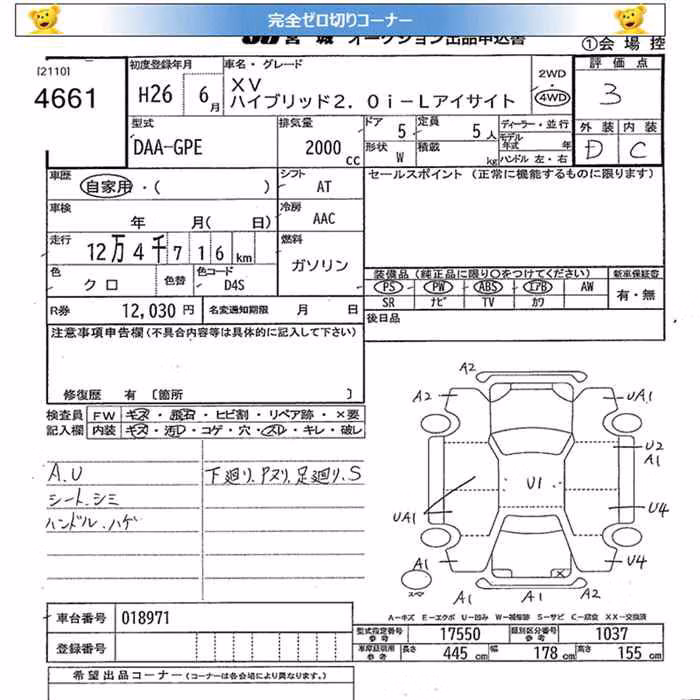 完全ゼロ切りコーナー
JU宮城 オークション出品申込書
①会場控
[2110]
4661
初度登録年月
H26 6月
車名・グレード
XV
ハイブリッド2.0i-Lアイサイト
2WD
・
4WD
評価点
3
外装 内装
D C
型式
DAA-GPE
排気量
2000cc
ドア 5
定員 5人
ディーラー・並行
形状 W
積載 kg
モデル年式 年
ハンドル 左・右
車歴
自家用・( )
シフト
AT
セールスポイント (正常に機能するものに限ります)
車検
年 月( 日)
冷房
AAC
走行
12万4千716km
燃料
ガソリン
色
クロ
色替
色コード
D4S
装備品(純正品に限り○をつけてください)
新車保証書
PS PW ABS エアB AW
SR ナビ TV カワ
有・無
R券 12,030円
名変通知期限 月 日
後日品
注意事項申告欄(不具合内容等は具体的に記入して下さい)
修復歴 有 [箇所 ]
検査員 FW キズ・飛石・ヒビ割・リペア跡・×要
記入欄 内装 キズ・汚レ・コゲ・穴・スレ・キレ・破レ
A.U
シート.シミ
ハンドル.ハゲ
下廻り.アヌリ.足廻り.S
A2
A2
UA1
U2
A1
U1
UA1
U4
A1
U4
スペ
A1
A1
A2
A−キズ E−エクボ U−凹み W−補修跡 S−サビ C−腐食 XX−交換済
車台番号 018971
登録番号
型式指定番号 参考 17550
類別区分番号 参考 1037
車庫証明用 参考 長さ 445cm 幅 178cm 高さ 155cm
希望出品コーナー(コーナーは各会場により異なります。)